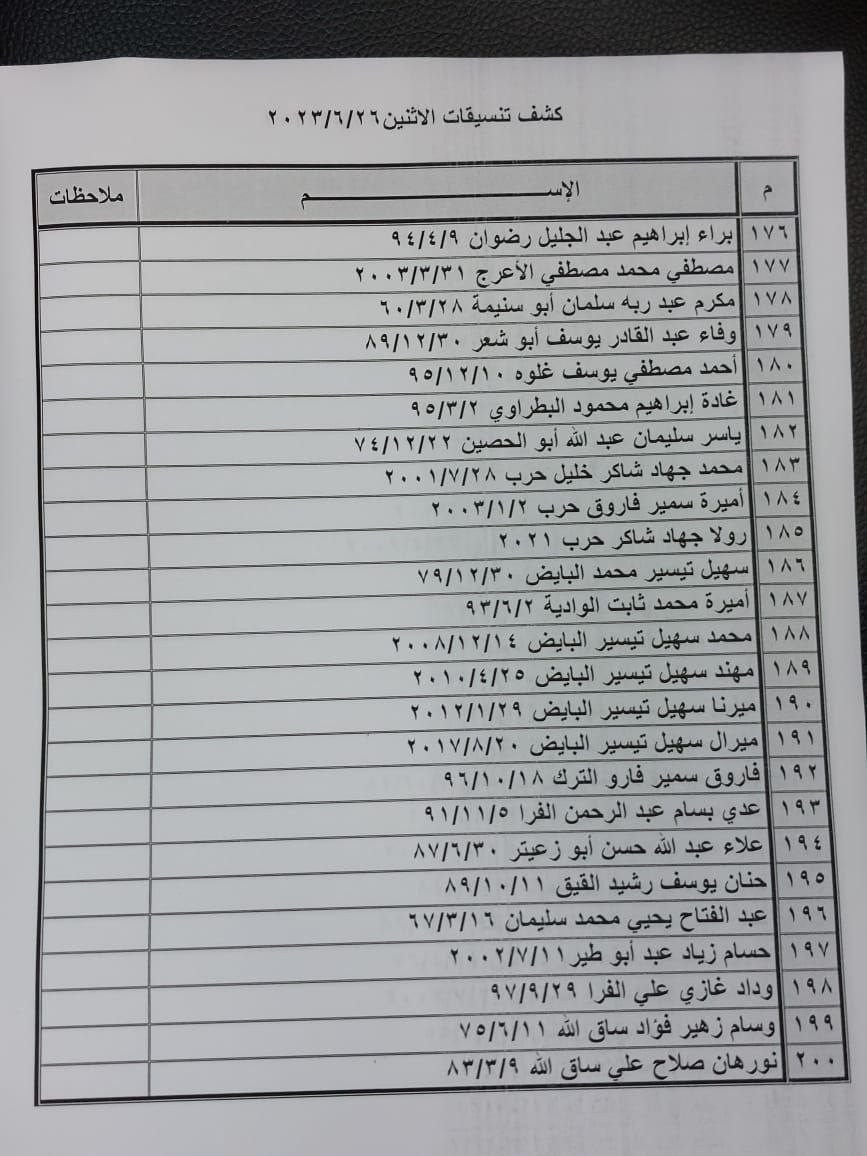 كشف تنسيقات الاثنين ٢٠٢٣/٦/٢٦
م الإســـــــــم ملاحظات
١٧٦ براء إبراهيم عبد الجليل رضوان ٩٤/٤/٩
١٧٧ مصطفي محمد مصطفي الأعرج ٢٠٠٣/٣/٣١
١٧٨ مكرم عبد ربه سلمان أبو سنيمة ٦٠/٣/٢٨
١٧٩ وفاء عبد القادر يوسف أبو شعر ٨٩/١٢/٣٠
١٨٠ أحمد مصطفي يوسف غلوه ٩٥/١٢/١٠
١٨١ غادة إبراهيم محمود البطراوي ٩٥/٣/٢
١٨٢ ياسر سليمان عبد الله أبو الحصين ٧٤/١٢/٢٢
١٨٣ محمد جهاد شاكر خليل حرب ٢٠٠١/٧/٢٨
١٨٤ أميرة سمير فاروق حرب ٢٠٠٣/١/٢
١٨٥ رولا جهاد شاكر حرب ٢٠٢١
١٨٦ سهيل تيسير محمد البايض ٧٩/١٢/٣٠
١٨٧ أميرة محمد ثابت الوادية ٩٣/٦/٢
١٨٨ محمد سهيل تيسير البايض ٢٠٠٨/١٢/١٤
١٨٩ مهند سهيل تيسير البايض ٢٠١٠/٤/٢٥
١٩٠ ميرنا سهيل تيسير البايض ٢٠١٢/١/٢٩
١٩١ ميرال سهيل تيسير البايض ٢٠١٧/٨/٢٠
١٩٢ فاروق سمير فارو الترك ٩٦/١٠/١٨
١٩٣ عدي بسام عبد الرحمن الفرا ٩١/١١/٥
١٩٤ علاء عبد الله حسن أبو زعيتر ٨٧/٦/٣٠
١٩٥ حنان يوسف رشيد القيق ٨٩/١٠/١١
١٩٦ عبد الفتاح يحيي محمد سليمان ٦٧/٣/١٦
١٩٧ حسام زياد عبد أبو طير ٢٠٠٢/٧/١١
١٩٨ وداد غازي علي الفرا ٩٧/٩/٢٩
١٩٩ وسام زهير فؤاد ساق الله ٧٥/٦/١١
٢٠٠ نورهان صلاح علي ساق الله ٨٣/٣/٩